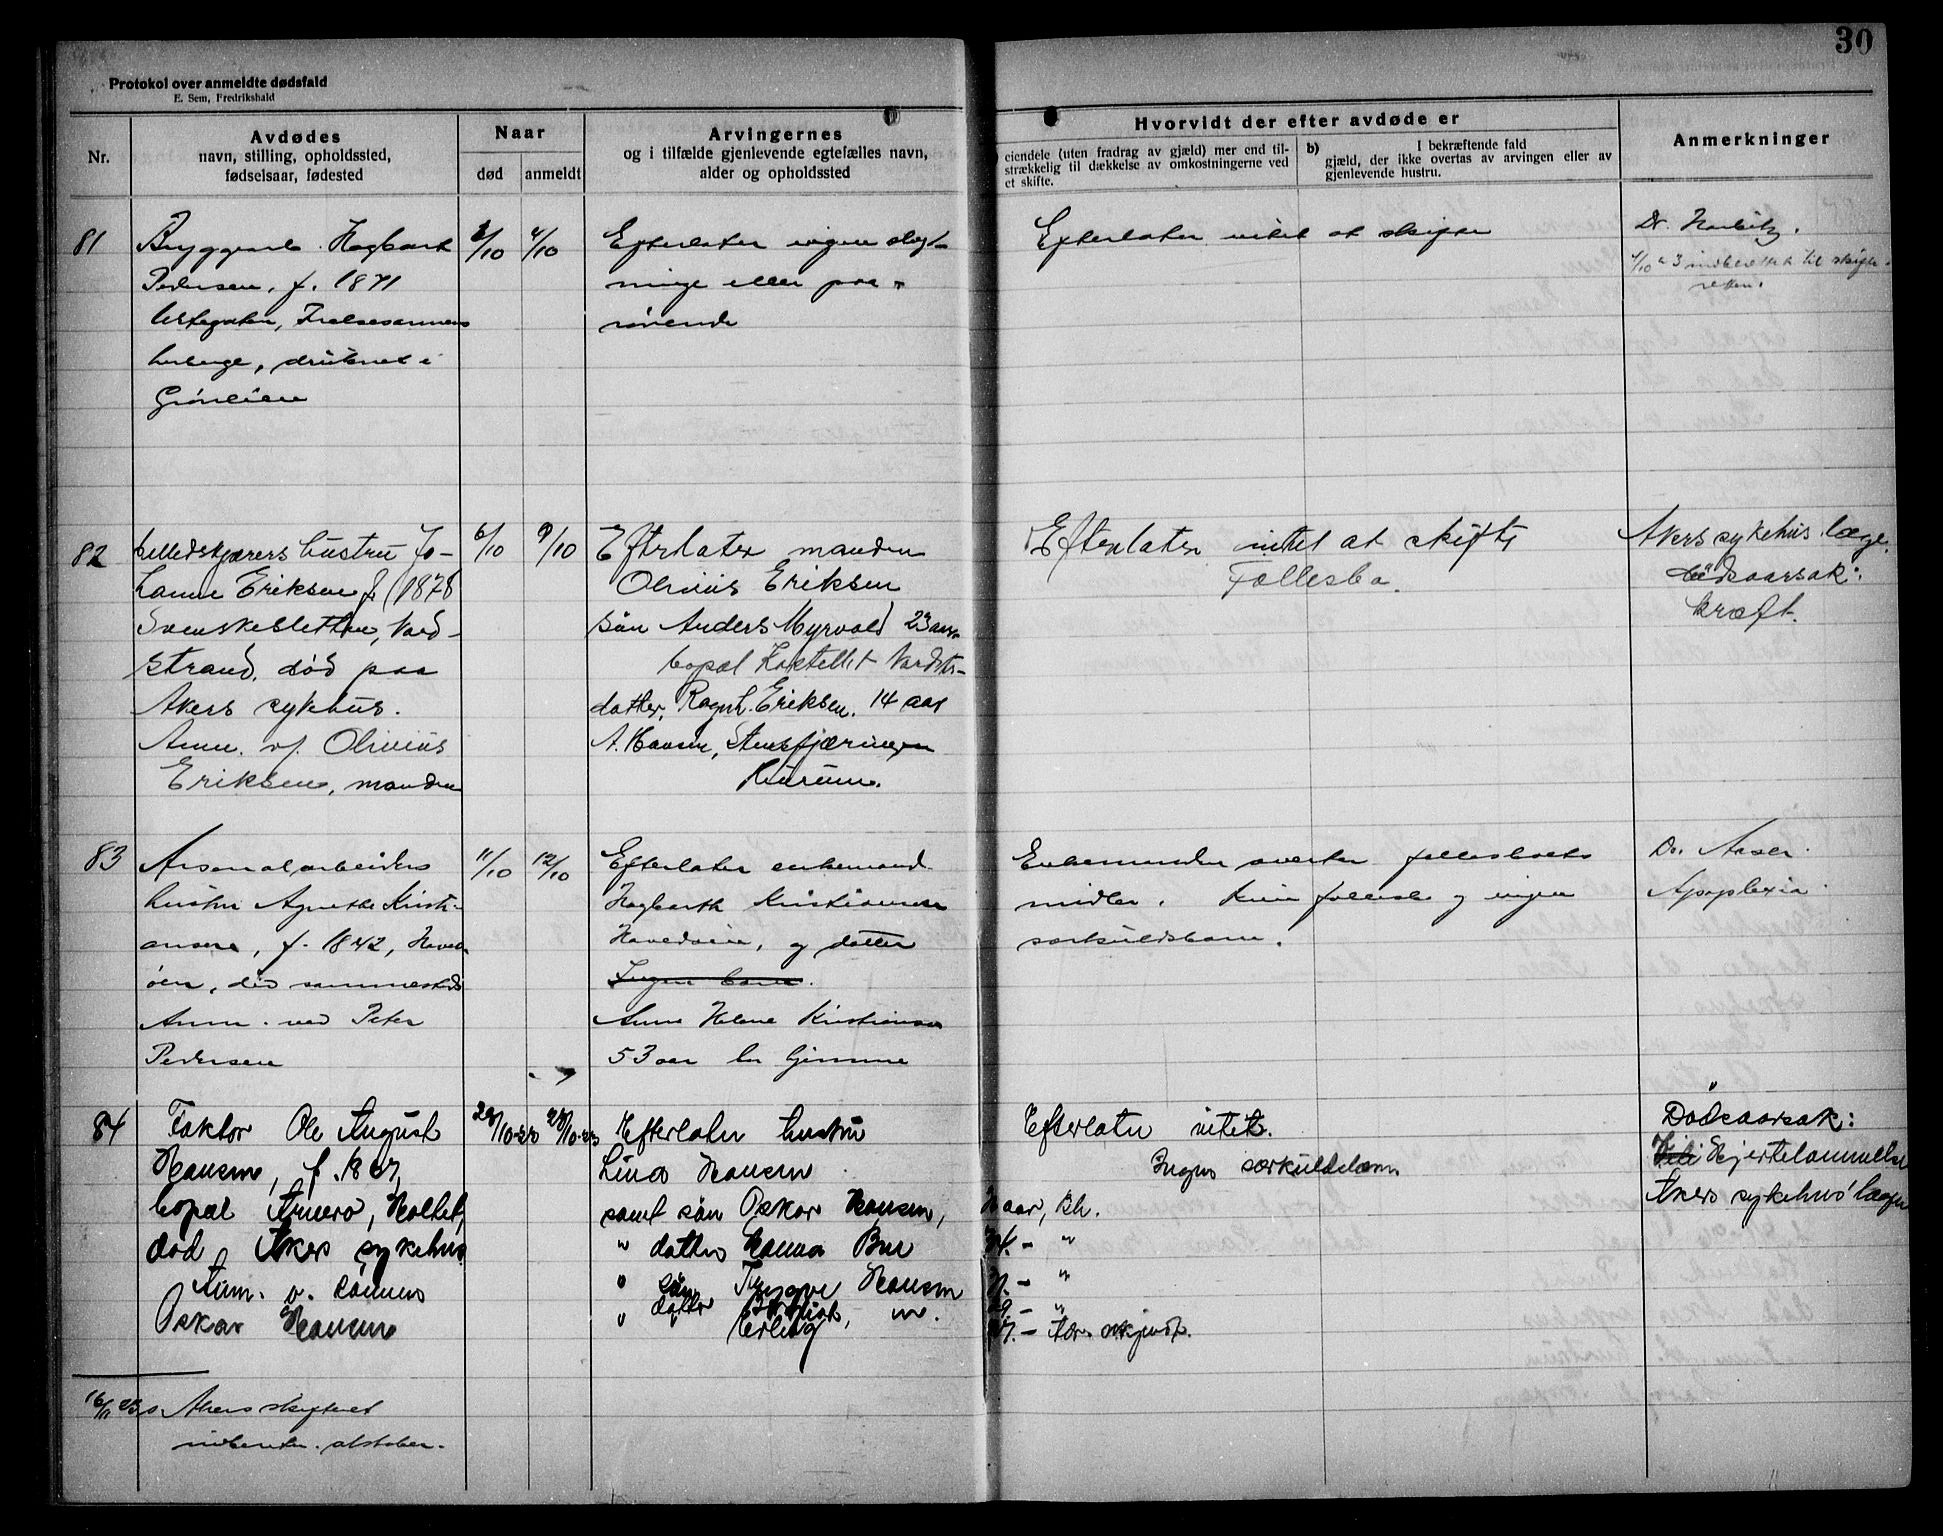 30
Protokol over anmeldte dødsfald
E. Sem, Fredrikshald
Nr.
Avdødes
navn, stilling, opholdssted,
fødselsaar, fødested
Naar
død
anmeldt
Arvingernes
og i tilfælde gjenlevende egtefælles navn,
alder og opholdssted
Hvorvidt der efter avdøde er
eiendele (uten fradrag av gjæld) mer end til-
strækkelig til dækkelse av omkostningerne ved
et skifte.
b)
I bekræftende fald
gjæld, der ikke overtas av arvingen eller av
gjenlevende hustru.
Anmerkninger
81
Hagbart
Pedersen, f. 1871
Frelsesarmeens
druknet i
Grønlien
/10
4/10
Efterlater ingen slegt-
ninge eller paa-
rørende
Efterlater intet at skifte
Dr. Harbitz.
indberettet til skifte-
retten.
82
hustru Jo-
hanne Eriksen f. 1878
Svenskesletten, Nord-
strand, død paa
Akers sykehus.
Anm. v. Olivius
Eriksen, manden
6/10
9/10
Efterlater manden
Olivius Eriksen
søn Anders Myrvold 23 aar
bopæl Kastellet Nordstr-
datter, Ragnh. Eriksen, 14 aar
A. Hansen,
Hurum.
Efterlater intet at skifte
Fællesbo.
Akers sykehus læge.
Dødsaarsak:
kræft.
83
Arsenalarbeiders
hustru Agnethe Kristi-
ansen, f. 1842, Hoved-
øen, død sammesteds
Anm. ved Peter
Pedersen
11/10
12/10
Efterlater enkemand
Hagbarth Kristiansen
Hovedøen, og datter
Ingen barn.
Anne Helene Kristiansen
53 aar bor hjemme
Enkemanden overtar fællesboets
midler. Kun fællesb. og ingen
særkuldsbarn.
Dr. Aaser.
Apoplexia.
84
Faktor Ole August
Hansen, f. 1867,
bopæl Holtet,
død Akers sykehus
Anm. v. sønnen
Oskar Hansen
/10-23
/10-23
Efterlater hustru
Lina Hansen
samt søn Oskar Hansen,
" datter Hanna
" søn Trygve Hansen
" datter
Erling
Efterlater intet.
Ingen særkuldsbarn
aar, Kr.
- "
- "
- "
-
Dødsaarsak:
Hjertelammelse
Akers sykehus' læge
16/11 23. Akers skifteret
indberetn. oktober.